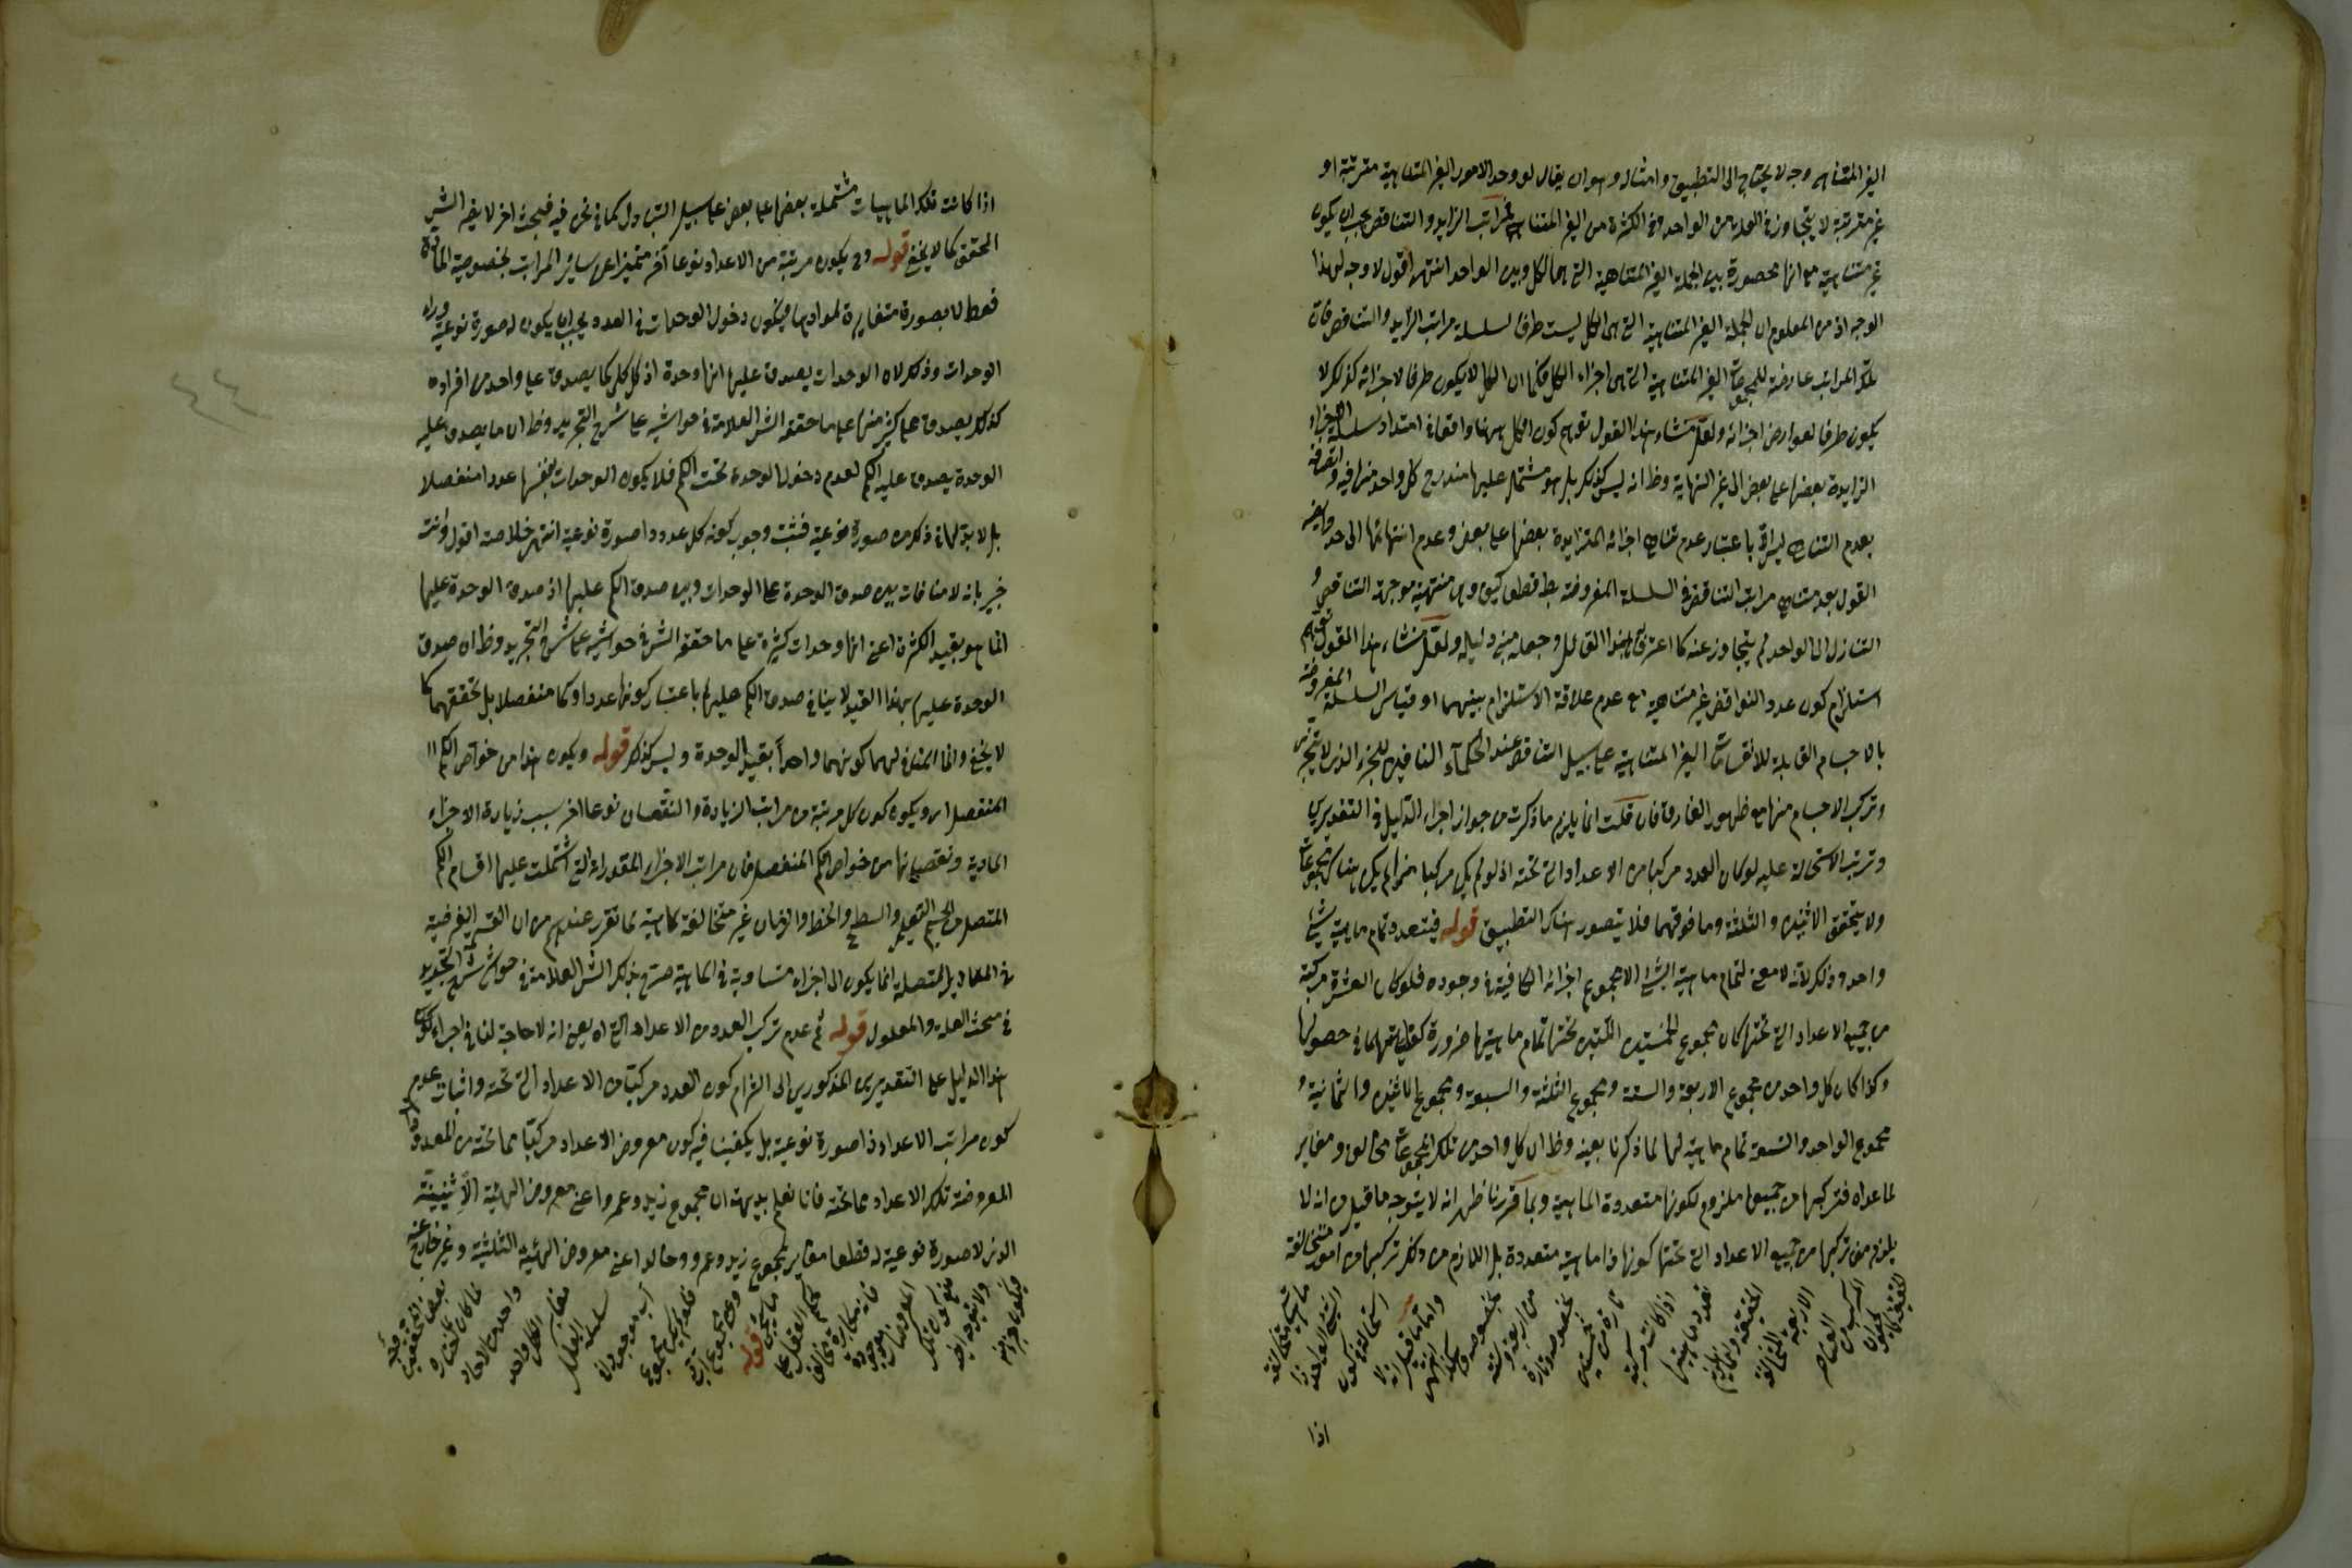 الغير المتناهى وجه لا يحتاج الى التطبيق وامثاله وهو ان يقال لو وجد الامور الغير المتناهية مترتبة او
غير مترتبة لا يتجاوز فى العدد من الواحد وفى الكثرة من الغير المتناهى فمراتب التزايد والتناقص يجب ان يكون
غير متناهية مع انها محصورة بين الجملة الغير المتناهية التى هى الكل وبين الواحد انتهى اقول لا وجه لهذا
الوجه اذ من المعلوم ان الجملة الغير المتناهية التى هى الكل ليست طرفا لسلسلة مراتب التزايد والتناقص فان
تلك المراتب عارضة للمجموعات الغير المتناهية التى هى اجزاء الكل فكما ان الكل لا يكون طرفا لاجزائه كذلك لا
يكون طرفا لعوارض اجزائه ولعل منشاء هذا القول توهم كون الكل ههنا واقعا فى امتداد سلسلة الاجزاء
الزايدة بعضها على بعض الى غير النهاية وظ انه ليس كذلك بل هو مشتمل عليها مندرج كل واحد منها فيه واتصافه
بعدم التناهى ليس الا باعتبار عدم تناهى اجزائه المتزايدة بعضها على بعض وعدم انتهائها الى حد وايضا
القول بعدم تناهى مراتب التناقص فى السلسلة المفروضة بط قطعا كيف وهى منتهية من جهة التناقص و
التنازل الى الواحد لم يتجاوز عنه كما اعترف به هذا القائل وجعله مبنى دليله ولعل منشاء هذا القول توهم
استلزام كون عدد النواقص غير متناهية مع عدم علاقة الاستلزام بينهما او قياس السلسلة المفروضة
بالاجسام القابلة للانقسامات الغير المتناهية على سبيل التناقص عند الحكماء النافين للجزء الذى لا يتجزى
وتركب الاجسام منها مع ظهور الفارق فان قلت انما يلزم ما ذكرت من جواز اجراء الدليل فى التقديرين
وترتب الاستحالة عليه لو كان العدد مركبا من الاعداد التى تحته اذ لو لم يكن مركبا منها لم يكن هناك مجموعات
ولا يتحقق الاثنين والثلثة وما فوقهما فلا يتصور هناك التطبيق قوله فيتعدد تمام ماهية شيئ
واحد وذلك لانه لا معنى لتمام ماهية الشيئ الا مجموع اجزائه الكافية فى وجوده فلو كان العشرة مركبة
من جميع الاعداد التى تحتها كان مجموع الخمستين اللتين تحتها تمام ماهيتها ضرورة كفايتهما فى حصولها
وكذا كان كل واحد من مجموع الاربعة والستة ومجموع الثلثة والسبعة ومجموع الاثنين والثمانية و
مجموع الواحد والتسعة تمام ماهية لها لما ذكرنا بعينه وظ ان كل واحد من تلك المجموعات مخالف ومغاير
لما عداه فتركبها من جميعها ملزوم لكونها متعددة الماهية وبما قررنا ظهر انه لا يتوجه ما قيل من انه لا
يلزم من تركبها من جميع الاعداد التى تحتها كونها ذا ماهية متعددة بل اللازم من ذلك تركبها من امور متخالفة
الحقيقة كما
المركب من العناصر
الاربعة المتخالفة
الحقيقة وانما يلزم
تعدد ماهيتها
اذا كانت مركبة
تارة من خمستين
بخصوصه وتارة
من اربعة وستة
بخصوصه وهكذا انتهى
واما ما قيل انه لا
استحالة فى كون
الشيئ الواحد ذا
ماهيات متخالفة
اذا
اذا كانت تلك الماهيات مشتملة بعضها على بعض على سبيل التبادل كما فى نحن فيه فبحث اخر لا يضر الش
المحقق كما لا يخفى قوله وح يكون مرتبة من الاعداد نوعا آخر متميزا عن سائر المراتب بخصوصية المادة
فقط لا بصورة متغايرة لموادها فيكون دخول الوحدات فى العدد يجب ان يكون له صورة نوعية وراء
الوحدات وذلك لان الوحدات يصدق عليها انها وحدة اذ كل كلى كما يصدق على واحد من افراده
كذلك يصدق على كثير منها على ما حققه الش العلامة فى حواشيه على شرح التجريد وظ ان ما يصدق عليه
الوحدة يصدق عليه الكم لعدم دخول الوحدة تحت الكم فلا يكون الوحدات بنفسها عددا منفصلا
بل لا بد لها فى ذلك من صورة نوعية فثبت وجوب كونه كل عدد ذا صورة نوعية انتهى خلاصته اقول وانت
خبير بانه لا منافات بين صدق الوحدة على الوحدات وبين صدق الكم عليها اذ صدق الوحدة عليها
انما هو بقيد الكثرة اعنى انها وحدات كثيرة على ما حققه الش فى حواشيه على شرح التجريد وظ ان صدق
الوحدة عليها بهذا القيد لا ينافى صدق الكم عليها باعتبار كونها عددا وكما منفصلا بل تحققهما كما
لا يخفى وانما المنافى لهما كونهما واحدا بقيد الوحدة وليس كذلك قوله ويكون هذا من خواص الكم
المنفصل اى ويكون كون كل مرتبة من مراتب الزيادة والنقصان نوعا اخر بسبب زيادة الاجزاء
المادية ونقصانها من خواص الكم المنفصل فان مراتب الاجزاء المقدارية التى اشتملت عليها اقسام الكم
المتصل من الجسم التعليمى والسطح والخط والزمان غير متخالفة كاهية لما تقرر عندهم من ان القسمة الغير ضية
فى المقادير المتصلة انما يكون الى اجزاء متساوية فى الماهية صرح بذلك الش العلامة فى حواشى شرح التجريد
فى مبحث العلة والمعلول قوله ثم عدم تركب العدد من الاعداد التى اه يعنى انه لا حاجة لنا فى اجراء
هذا الدليل على التقديرين المذكورين الى التزام كون العدد مركبا من الاعداد التى تحته واثبات عدم
كون مراتب الاعداد ذا صورة نوعية بل يكفينا فيه كون معروض الاعداد مركبا مما تحته من المعدودات
المعروضة لتلك الاعداد مما تحته فانا نعلم بديهة ان مجموع زيد وعمرو اعنى معروض الهيئة الاثنينية
الذى لا صورة نوعية له قطعا مغاير لمجموع زيد وعمرو وخالد اعنى معروض الهيئة الثلثية وغير خارج عنه
فيكون جزء منه
ولا يتفوه
منع كون تلك
المعروضات موجودة
فانه مكابرة يخالف
حكم العقل على
ما سيجئ قوله
وهى مجموع
فلو لم يكن مجموع
آ ب موجودا فى
سلسلة العلل
مغاير الكل واحد
واحد من الاحاد
لما كان